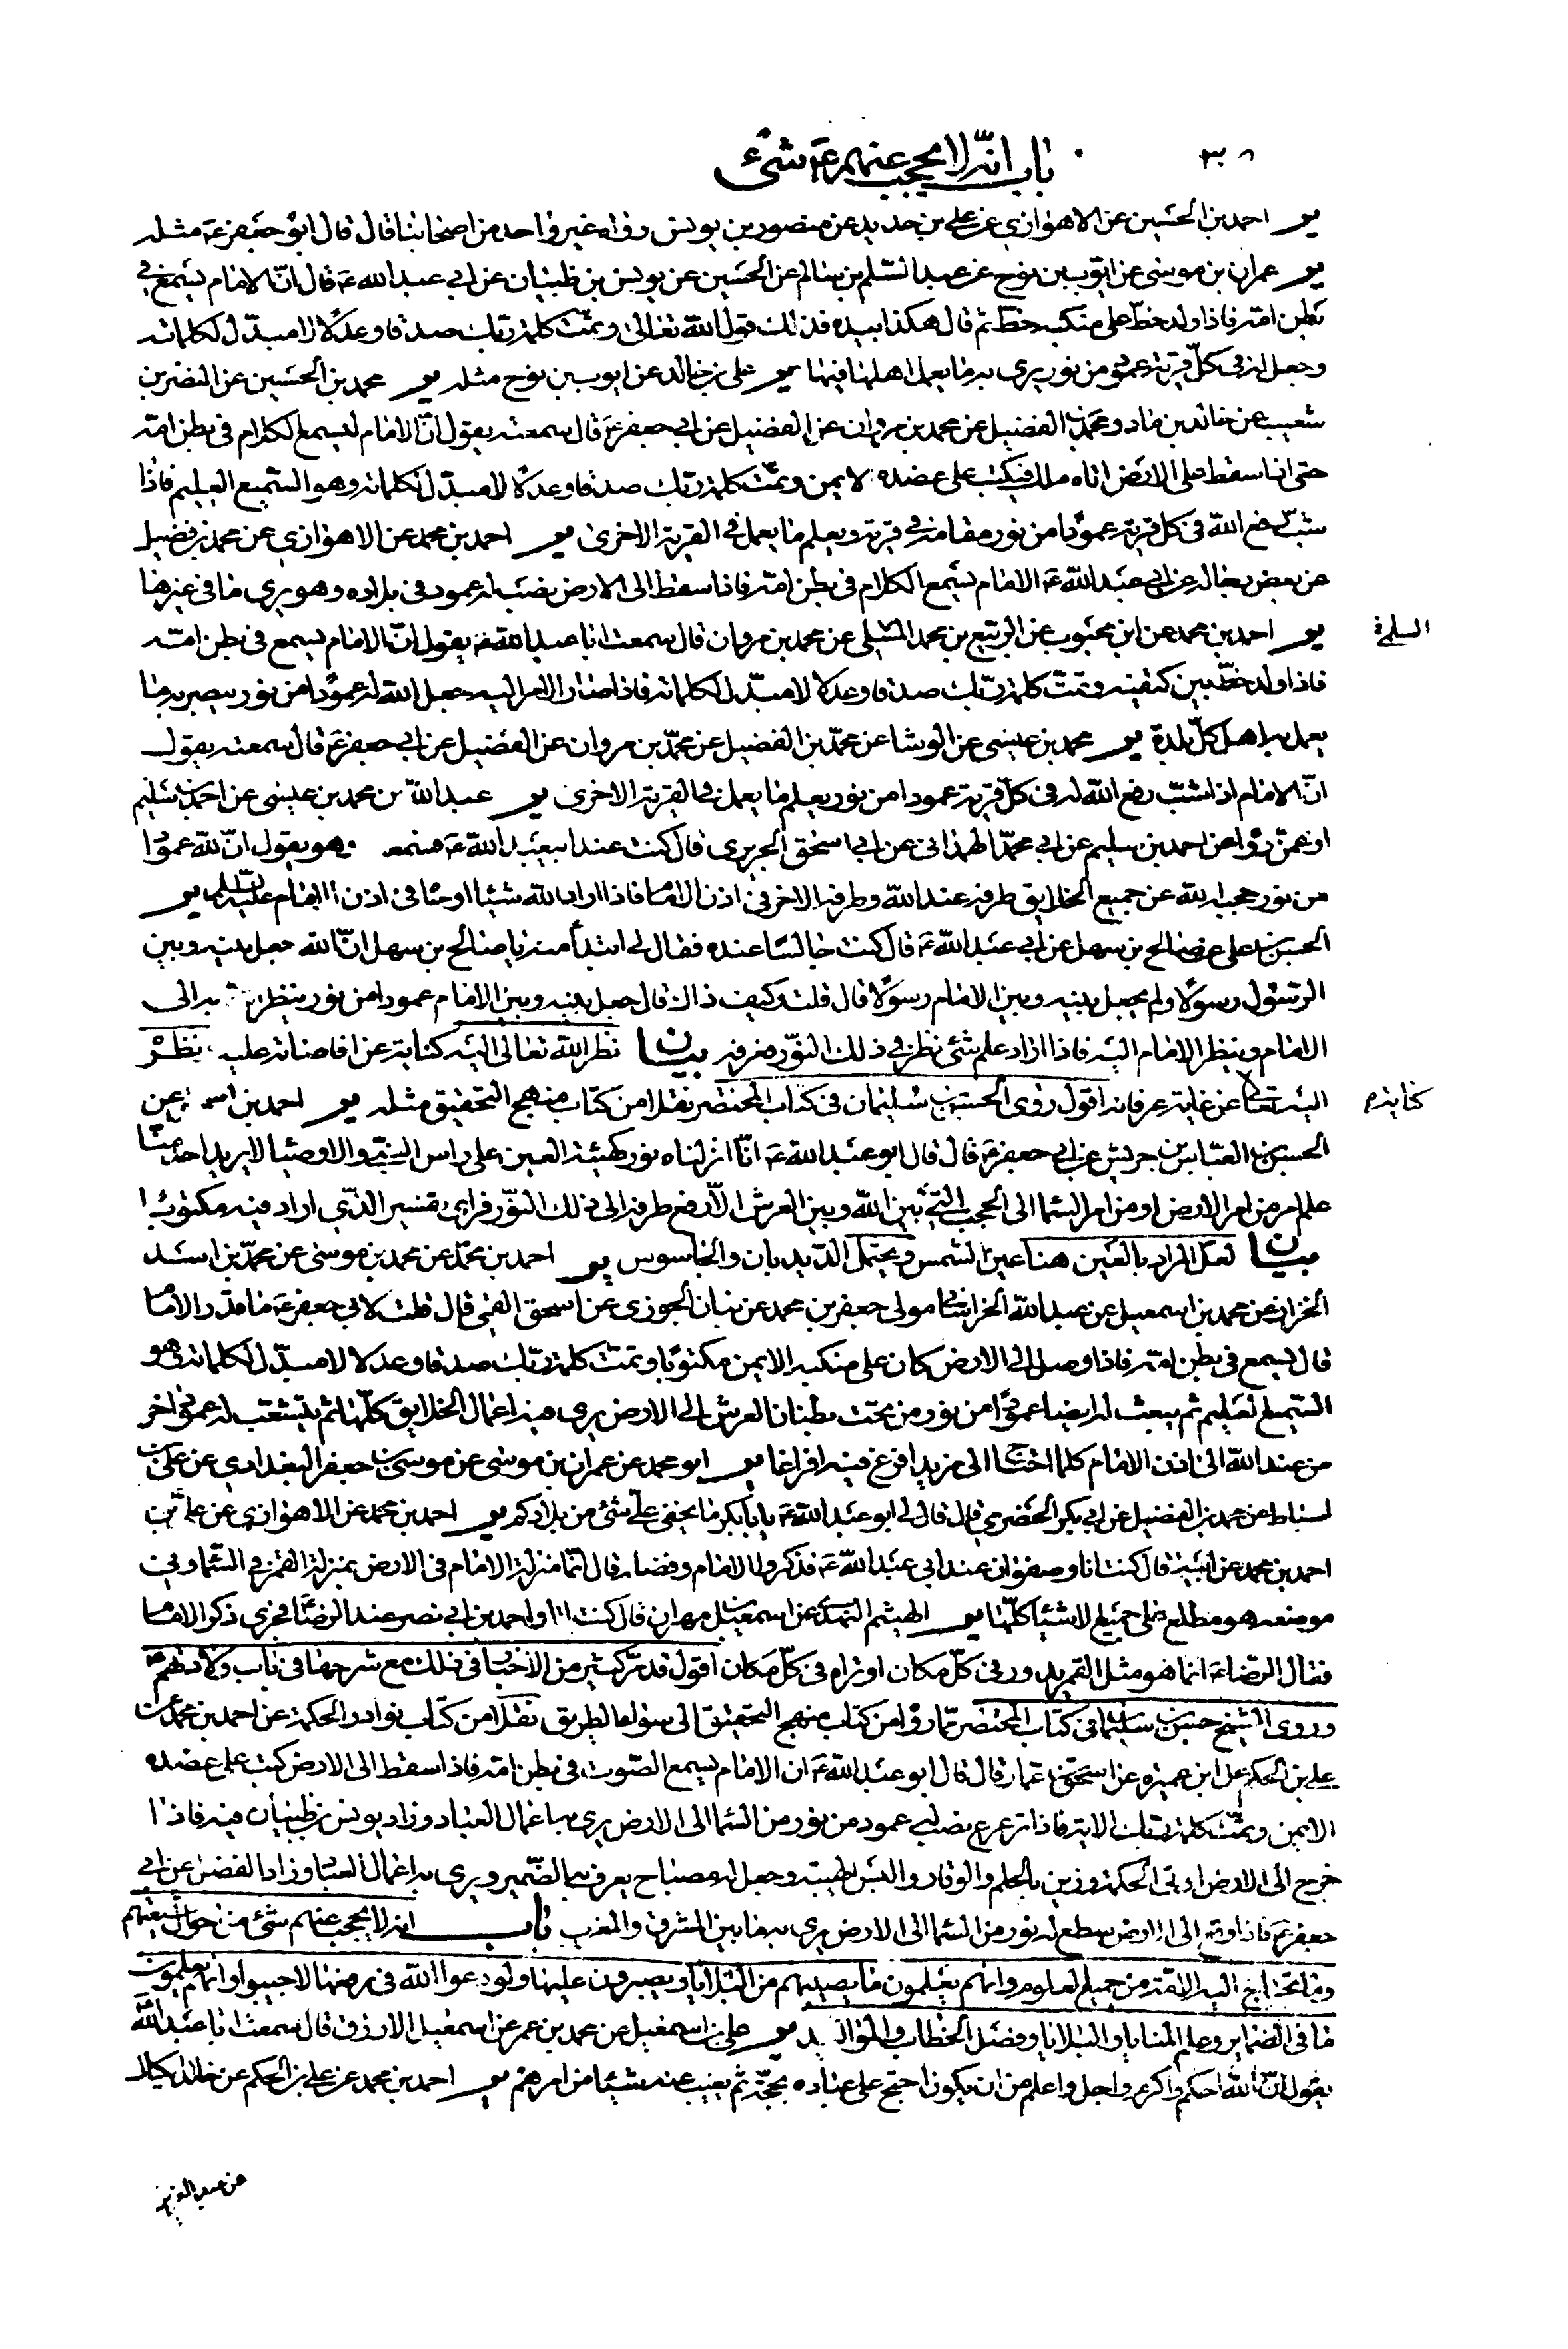 باب انه لا يحجب عنهم ع شئ
ير احمد بن الحسين عن الاهوازى عن على بن حديد عن منصور بن يونس رواه غير واحد من اصحابنا قال قال ابو جعفر ع مثله
ير عمران بن موسى عن ايوب بن نوح عن عبد السلم بن سالم عن الحسين عن يونس بن ظبيان عن ابى عبد الله ع قال ان الامام يسمع فى
بطن امه فاذا ولد خط على منكبه خط ثم قال هكذا بيده فذلك قول الله تعالى وتمت كلمة ربك صدقا وعدلا لا مبدل لكلماته
وجعل له فى كل قرية عمود من نور يرى به ما يعمل اهلها فيها ير على بن خالد عن ايوب بن نوح مثله ير محمد بن الحسين عن النضر بن
شعيب عن خالد بن ماد ومحمد بن الفضيل عن محمد بن مروان عن الفضيل عن ابى جعفر ع قال سمعته يقول ان الامام ليسمع الكلام فى بطن امه
حتى اذا سقط على الارض اتاه ملك فيكتب على عضده الايمن وتمت كلمة ربك صدقا وعدلا لا مبدل لكلماته وهو السميع العليم فاذا
شب رفع الله فى كل قرية عمودا من نور مقامه فى قرية ويعلم ما يعمل فى القرية الاخرى ير احمد بن محمد عن الاهوازى عن محمد بن فضيل
عن بعض رجاله عن ابى عبد الله ع الامام يسمع الكلام فى بطن امه فاذا سقط الى الارض نصب له عمود فى بلاده وهو يرى ما فى غيرها
ير احمد بن محمد عن ابن محبوب عن الربيع بن محمد المسلى عن محمد بن مروان قال سمعت ابا عبد الله ع يقول ان الامام يسمع فى بطن امه
السلمة
فاذا ولد خط بين كتفيه وتمت كلمة ربك صدقا وعدلا لا مبدل لكلماته فاذا صار الامر اليه جعل الله له عمودا من نور يبصر به ما
يعمل به اهل كل بلدة ير محمد بن عيسى عن الوشا عن محمد بن الفضيل عن محمد بن مروان عن الفضيل عن ابى جعفر ع قال سمعته يقول
ان الامام اذا شب رفع الله له فى كل قرية عمودا من نور يعلم ما يعمل فى القرية الاخرى ير عبد الله بن محمد بن عيسى عن احمد بن سليم
او عمن رواه عن احمد بن سليم عن ابى محمد الهمدانى عن ابى اسحق الجريرى قال كنت عند ابى عبد الله ع فسمعته وهو يقول ان لله عمودا
من نور حجبه الله عن جميع الخلايق طرفه عند الله وطرفه الاخر فى اذن الامام فاذا اراد الله شيئا اوحاه فى اذن الامام عليه السلم ير
الحسن بن على عن صالح بن سهل عن ابى عبد الله ع قال كنت جالسا عنده فقال لى ابتداء منه يا صالح بن سهل ان الله جعل بينه وبين
الرسول رسولا ولم يجعل بينه وبين الامام رسولا قال قلت وكيف ذاك قال جعل بينه وبين الامام عمودا من نور ينظر به الى
الامام وينظر الامام اليه فاذا اراد علم شئ نظر فى ذلك النور فعرفه بيان نظر الله تعالى اليه كناية عن افاضاته عليه ونظره
اليه تعالى عن غاية عرفانه اقول روى الحسن بن سليمان فى كتاب المحتضر نقلا من كتاب منهج التحقيق مثله ير احمد بن عن
كنايته م
الحسن بن العباس بن جريش عن ابى جعفر ع قال قال ابو عبد الله ع انا انزلناه نور كهيئة العين على راس النبى والاوصيا لا يريد احد منا
علم امر من امر الارض او من امر السما الى الحجب التى بين الله وبين العرش الا رفع طرفه الى ذلك النور فراى تفسير الذى اراد فيه مكتوبا
بيان لعل المراد بالعين هنا عين الشمس ويحتمل الديدبان والجاسوس ير احمد بن محمد عن محمد بن موسى عن محمد بن اسد
الخزاز عن محمد بن اسمعيل عن عبد الله الخراسانى مولى جعفر بن محمد عن بنان الجوزى عن اسحق القمى قال قلت لابى جعفر ع ما قدر الامام
قال يسمع فى بطن امه فاذا وصل الى الارض كان على منكبه الايمن مكتوبا وتمت كلمة ربك صدقا وعدلا لا مبدل لكلماته وهو
السميع العليم ثم يبعث له ايضا عمودا من نور من تحت بطنان العرش الى الارض يرى فيه اعمال الخلايق كلها ثم يتشعب له عمود اخر
من عند الله الى اذن الامام كلما احتاج الى مزيد افرغ فيه افراغا ير ابو محمد عن عمران بن موسى عن موسى بن جعفر البغدادى عن على بن
اسباط عن محمد بن الفضيل عن ابى بكر الحضرمى قال قال لى ابو عبد الله ع يا با بكر ما يخفى على شئ من بلادكم ير احمد بن محمد عن الاهوازى عن على بن
احمد بن محمد عن ابيه قال كنت انا وصفوان عند ابى عبد الله ع فذكروا الامام وفضله قال انما منزلة الامام فى الارض بمنزلة القمر فى السما وفى
موضعه هو مطلع على جميع الاشيا كلها ير الهيثم النهدى عن اسمعيل بن مهران قال كنت انا واحمد بن ابى نصر عند الرضا فجرى ذكر الامام
فقال الرضا ع انما هو مثل القمر يدور فى كل مكان او تراه فى كل مكان اقول قد مر كثير من الاخبار فى ذلك مع شرحها فى باب ولادتهم ع
وروى الشيخ حسن بن سليمان فى كتاب المحتضر مما رواه من كتاب منهج التحقيق الى سواء الطريق نقلا من كتاب نوادر الحكمة عن احمد بن محمد عن
على بن الحكم عن ابن عميرة عن اسحق بن عمار قال قال ابو عبد الله ع ان الامام يسمع الصوت فى بطن امه فاذا سقط الى الارض كتب على عضده
الايمن وتمت كلمة ربك الاية فاذا ترعرع نصب له عمود من نور من السما الى الارض يرى به اعمال العباد وزاد يونس بن ظبيان فيه فاذا
خرج الى الارض اوتى الحكمة وزين بالحلم والوقار والبس الهيبة وجعل له مصباح يعرف به الضمير ويرى به اعمال العباد وزاد الفضل عن ابى
جعفر ع فاذا وقع الى الارض سطع له نور من السما الى الارض يرى به ما بين المشرق والمغرب باب انه لا يحجب عنهم شئ من احوال شيعتهم
وما تحتاج اليه الامة من جميع العلوم وانهم يعلمون ما يصيبهم من البلايا ويصبرون عليها ولو دعوا الله فى دفعها لاجيبوا وانهم يعلمون
ما فى الضماير وعلم المنايا والبلايا وفصل الخطاب والمواليد ير على بن اسمعيل عن محمد بن عمر عن اسمعيل الازرق قال سمعت ابا عبد الله
يقول ان الله احكم واكرم واجل واعلم من ان يكون احتج على عباده بحجة ثم يغيب عنه شيئا من امرهم ير احمد بن محمد عن على بن الحكم عن خالد الكيال
عن عبد العزيز